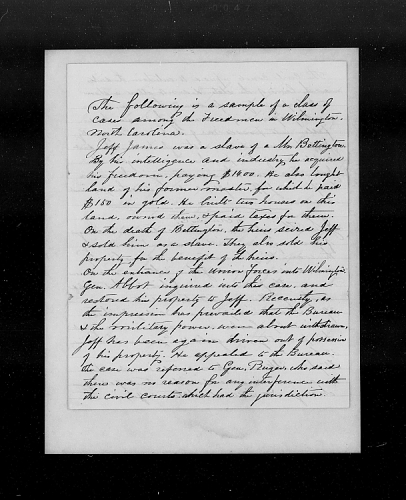 The following is a sample of a class of
cases among the Freedmen in Wilmington,
North Carolina.
Jeff James was a slave of a Mr. Bettington.
By his intelligence and industry, he acquired
his freedom, paying $1400. He also bought
land of his former master, for which he paid
$150 in gold. He built two houses on this
land, owned them, & paid taxes for them.
On the death of Bettington, the heirs seized Jeff
& sold him as a slave. They also sold his
property for the benefit of the heirs.
On the entrance of the Union forces into Wilmington
Gen. Abbot inquired into this case, and
restored his property to Jeff. Recently, as
the impression has prevailed that the Bureau
& the military power, were about withdrawn,
Jeff has been again driven out of possession
of his property. He appealed to the Bureau.
the case was referred to Gen. Ruger, who said
there was no reason for any interference with
the civil courts, which had the jurisdiction.